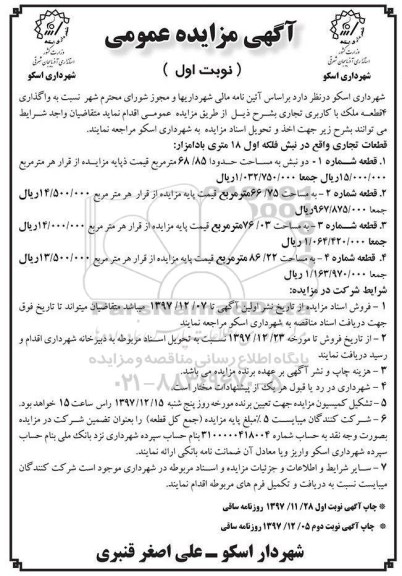 آگهی مزایده عمومی
( نوبت اول )
وزارت کشور
استانداری آذربایجان شرقی
شهرداری اسکو
وزارت کشور
استانداری آذربایجان شرقی
شهرداری اسکو
شهرداری اسکو درنظر دارد براساس آئین نامه مالی شهرداریها و مجوز شورای محترم شهر نسبت به واگذاری
۴قطعه ملک با کاربری تجاری بشرح ذیل از طریق مزایده عمومی اقدام نماید متقاضیان واجد شرایط
می توانند بشرح زیر جهت اخذ و تحویل اسناد مزایده به شهرداری اسکو مراجعه نمایند.
قطعات تجاری واقع در نبش فلکه اول ۱۸ متری بادامزار:
۱. قطعه شماره ۰۱ دو نبش به مساحت حدودا ۶۸/۸۵ مترمربع قیمت پایه مزایده از قرار هر مترمربع
۱۵/۰۰۰/۰۰۰ریال جمعا ۱/۰۳۲/۷۵۰/۰۰۰ ریال
۲. قطعه شماره ۲ – به مساحت ۶۶/۷۵مترمربع قیمت پایه مزایده از قرار هر متر مربع ۱۴/۵۰۰/۰۰۰ریال
جمعا ۹۶۷/۸۷۵/۰۰۰ریال
۳. قطعه شماره ۳ – به مساحت ۷۶/۰۳مترمربع قیمت پایه مزایده از قرار هر متر مربع ۱۴/۰۰۰/۰۰۰ریال
جمعا ۱/۰۶۴/۴۲۰/۰۰۰ ریال
۴. قطعه شماره ۴ – به مساحت ۸۶/۲۲ مترمربع قیمت پایه مزایده از قرار هر متر مربع ۱۳/۵۰۰/۰۰۰ریال
جمعا ۱/۱۶۳/۹۷۰/۰۰۰ ریال
شرایط شرکت در مزایده:
۱ – فروش اسناد مزایده از تاریخ نشر اولین آگهی تا ۱۳۹۷/۱۲/۰۷ میباشد متقاضیان میتواند تا تاریخ فوق
جهت دریافت اسناد مناقصه به شهرداری اسکو مراجعه نمایند.
۲ – از تاریخ فروش تا مورخه ۱۳۹۷/۱۲/۲۳ نسبت به تحویل اسناد مربوطه به دبیرخانه شهرداری اقدام و
رسید دریافت نمایند
۳ – هزینه چاپ و نشر آگهی بر عهده برنده مزایده می باشد.
۴ – شهرداری در رد یا قبول هر یک از پیشنهادات مختار است.
۵ – تشکیل کمیسیون مزایده جهت تعیین برنده مورخه روز پنج شنبه ۱۳۹۷/۱۲/۱۵ راس ساعت ۱۵ خواهد بود.
۶ – شرکت کنندگان میبایست ۵ ٪مبلغ پایه مزایده (جمع کل قطعه) را بعنوان تضمین شرکت در مزایده
بصورت وجه نقد به حساب شماره ۳۱۰۰۰۰۰۴۱۸۰۰۴بنام حساب سپرده شهرداری نزد بانک ملی بنام حساب
سپرده شهرداری اسکو واریز و یا معادل آن ضمانت نامه بانکی ارائه نمایند.
۷ – سایر شرایط و اطلاعات و جزئیات مزایده و اسناد مربوطه در شهرداری موجود است شرکت کنندگان
میبایست نسبت به دریافت و تکمیل فرم های مربوطه اقدام نمایند.
* چاپ آگهی نوبت اول ۱۳۹۷/۱۱/۲۸ روزنامه ساقی
* چاپ آگهی نوبت دوم ۱۳۹۷/۱۲/۰۵ روزنامه ساقی
شهردار اسکو – علی اصغر قنبری
پایگاه اطلاع رسانی مناقصه و مزایده